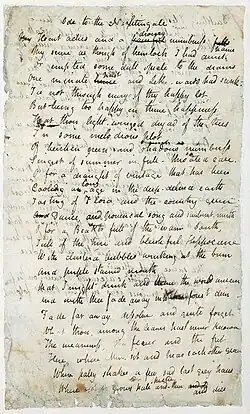 Ode to the Nightingale
Heart aches and a drowsy numbness pains
My sense as though of hemlock I had drunk
Or emptied some dull opiate to the drains
One minute past and Lethe-wards had sunk
'Tis not through envy of thy happy lot
But being too happy in thine happiness
That thou light winged dryad of the trees
In some melodious plot
Of beechen green and shadows numberless
Singest of summer in full-throated ease.
O for a draught of vintage that has been
Cooling an age in the deep delved earth
Tasting of Flora, and the country green
Dance, and provencal song and sunburnt mirth
O for a Beaker full of the warm South
Full of the true and blushful Hippocrene
With cluster'd bubbles winking at the brim
And purple stained mouth
That I might drink and leave the world unseen
And with thee fade away into the forest dim
Fade far away, dissolve and quite forget
What thou among the leaves hast never known
The weariness, the fever and the fret
Here, where Men sit and hear each other groan
Where palsy shakes a few sad last grey hairs
Where youth grows pale and thin and